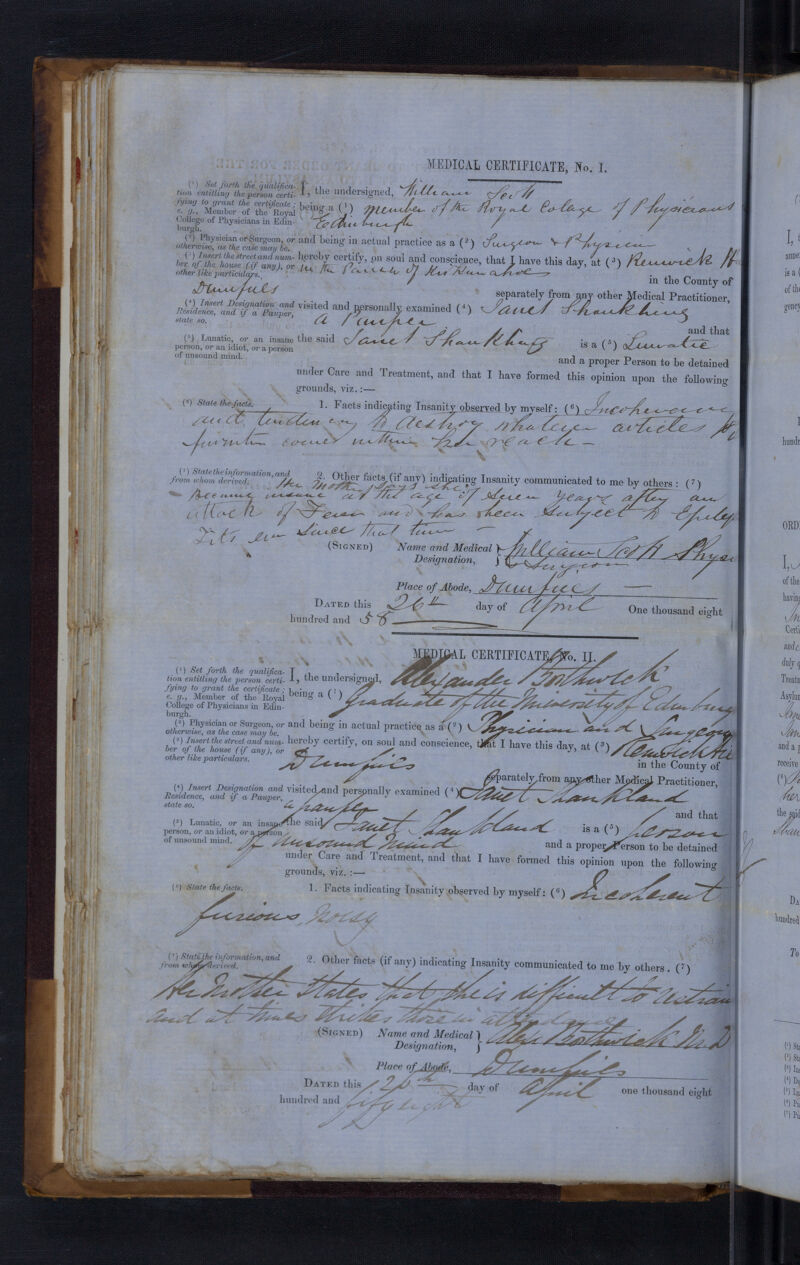 MEDICAL CERTIFICATE, No. I.
(¹) Set forth the qualifica-
tion entitling the person certi-
fying to grant the certificate;
e. g., Member of the Royal
College of Physicians in Edin-
burgh.
I, the undersigned, William Scott
being a (¹) member of the Royal Colage of Physicians
Edinburgh
(²) Physician or Surgeon, or
otherwise, as the case may be.
and being in actual practice as a (²) Surgeon & Physician
(³) Insert the street and num-
ber of the house (if any), or
other like particulars.
hereby certify, on soul and conscience, that I have this day, at (³) Renwick
in the Parish of
in the County of
Dumfries
separately from any other Medical Practitioner,
(⁴) Insert Designation and
Residence, and if a Pauper,
state so.
visited and personally examined (⁴) Janet Shankland
a Pauper
and that
(⁵) Lunatic, or an insane
person, or an idiot, or a person
of unsound mind.
the said Janet Shankland is a (⁵) Lunatic
and a proper Person to be detained
under Care and Treatment, and that I have formed this opinion upon the following
grounds, viz. :—
(⁶) State the facts.
1. Facts indicating Insanity observed by myself: (⁶) Incoherency
and tendency to destroy whatever articles
furniture comes within her reach —
(⁷) State the information, and
from whom derived.
2. Other facts (if any) indicating Insanity communicated to me by others : (⁷)
Her Mother says she
became insane at the age of seven years after an
attack of Fever and has been subject to
Fits ever since that time —
(SIGNED) Name and Medical
Designation,
William Scott
& Surgeon
Place of Abode, Dumfries —
DATED this 26th day of April One thousand eight
hundred and 58
MEDICAL CERTIFICATE, No. II.
(¹) Set forth the qualifica-
tion entitling the person certi-
fying to grant the certificate;
e. g., Member of the Royal
College of Physicians in Edin-
burgh.
I, the undersigned, Alexander Borthwick
being a (¹) Graduate of the University of
(²) Physician or Surgeon, or
otherwise, as the case may be.
and being in actual practice as a (²) Physician and Surgeon
(³) Insert the street and num-
ber of the house (if any), or
other like particulars.
hereby certify, on soul and conscience, that I have this day, at (³) Renwick
Dumfries in the County of
separately from any other Medical Practitioner,
(⁴) Insert Designation and
Residence, and if a Pauper,
state so.
visited and personally examined (⁴) Janet Shankland
a pauper
and that
(⁵) Lunatic, or an insane
person, or an idiot, or a person
of unsound mind.
the said Janet Shankland is a (⁵) person
of unsound mind and a proper Person to be detained
under Care and Treatment, and that I have formed this opinion upon the following
grounds, viz. :—
(⁶) State the facts.
1. Facts indicating Insanity observed by myself: (⁶) Incoherent
furious, noisy
(⁷) State the information, and
from whom derived.
2. Other facts (if any) indicating Insanity communicated to me by others. (⁷)
Her Mother states that she is difficult to
and at times strikes those in attendance
(SIGNED) Name and Medical
Designation,
Alexr Borthwick M.D
Place of Abode, Dumfries
DATED this 26th day of April one thousand eight
hundred and fifty eight